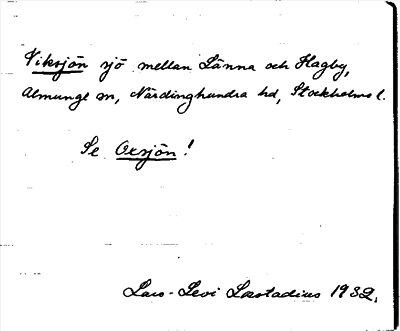 Viksjön sjö mellan Länna och Hagby,
Almunge sn, Närdinghundra hd, Stockholms l.
Se Oxsjön!
Lars-Levi Læstadius 1932.